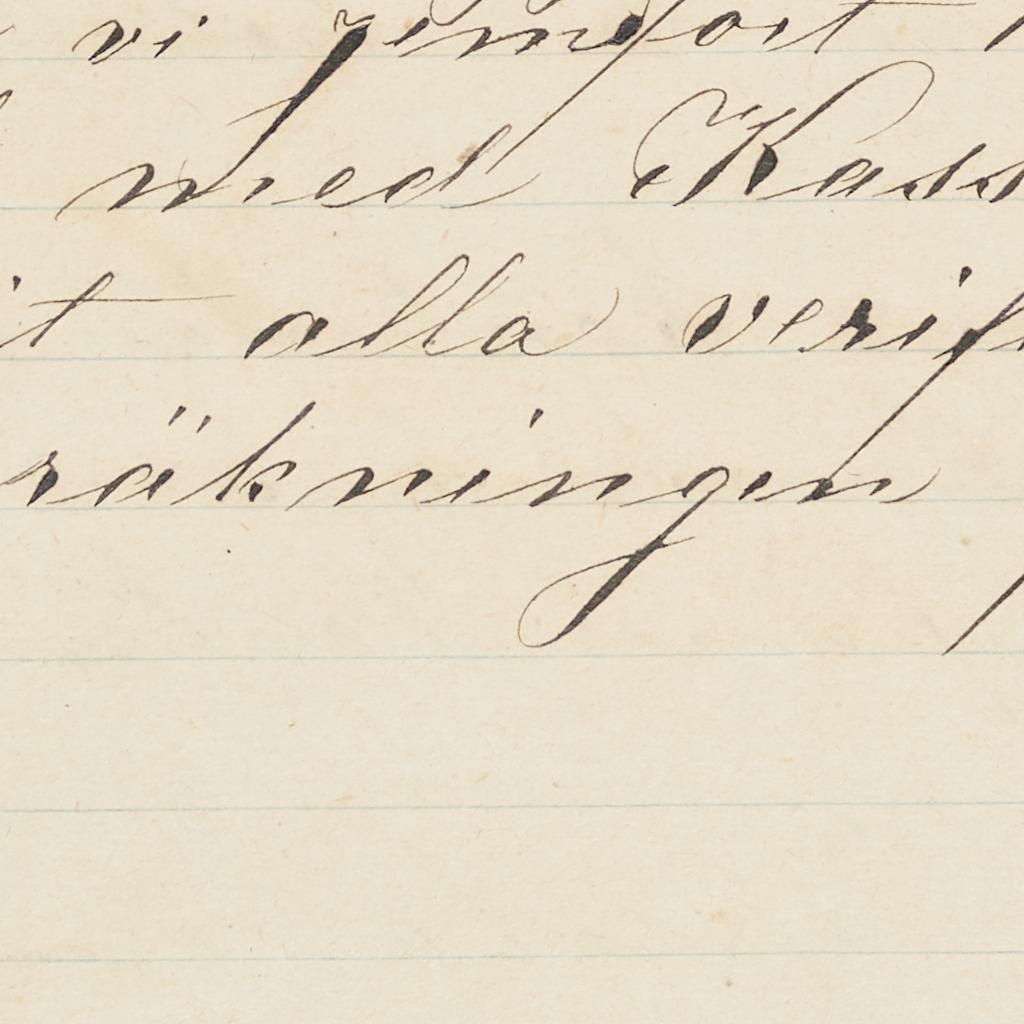 vi jemfört
med Kass
it alla verif
räkningen